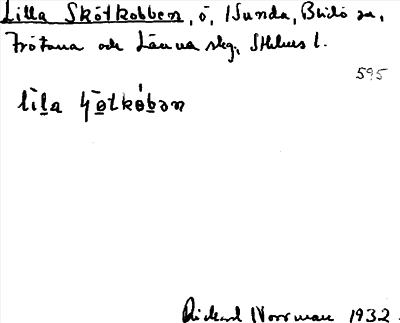 Lilla Skötkobben, ö, /Sunda, Blidö sn,
Frötuna och Länna skg, Sthlms l.
595
lìla ɧȫtkóbən
Rickard Norrman 1932